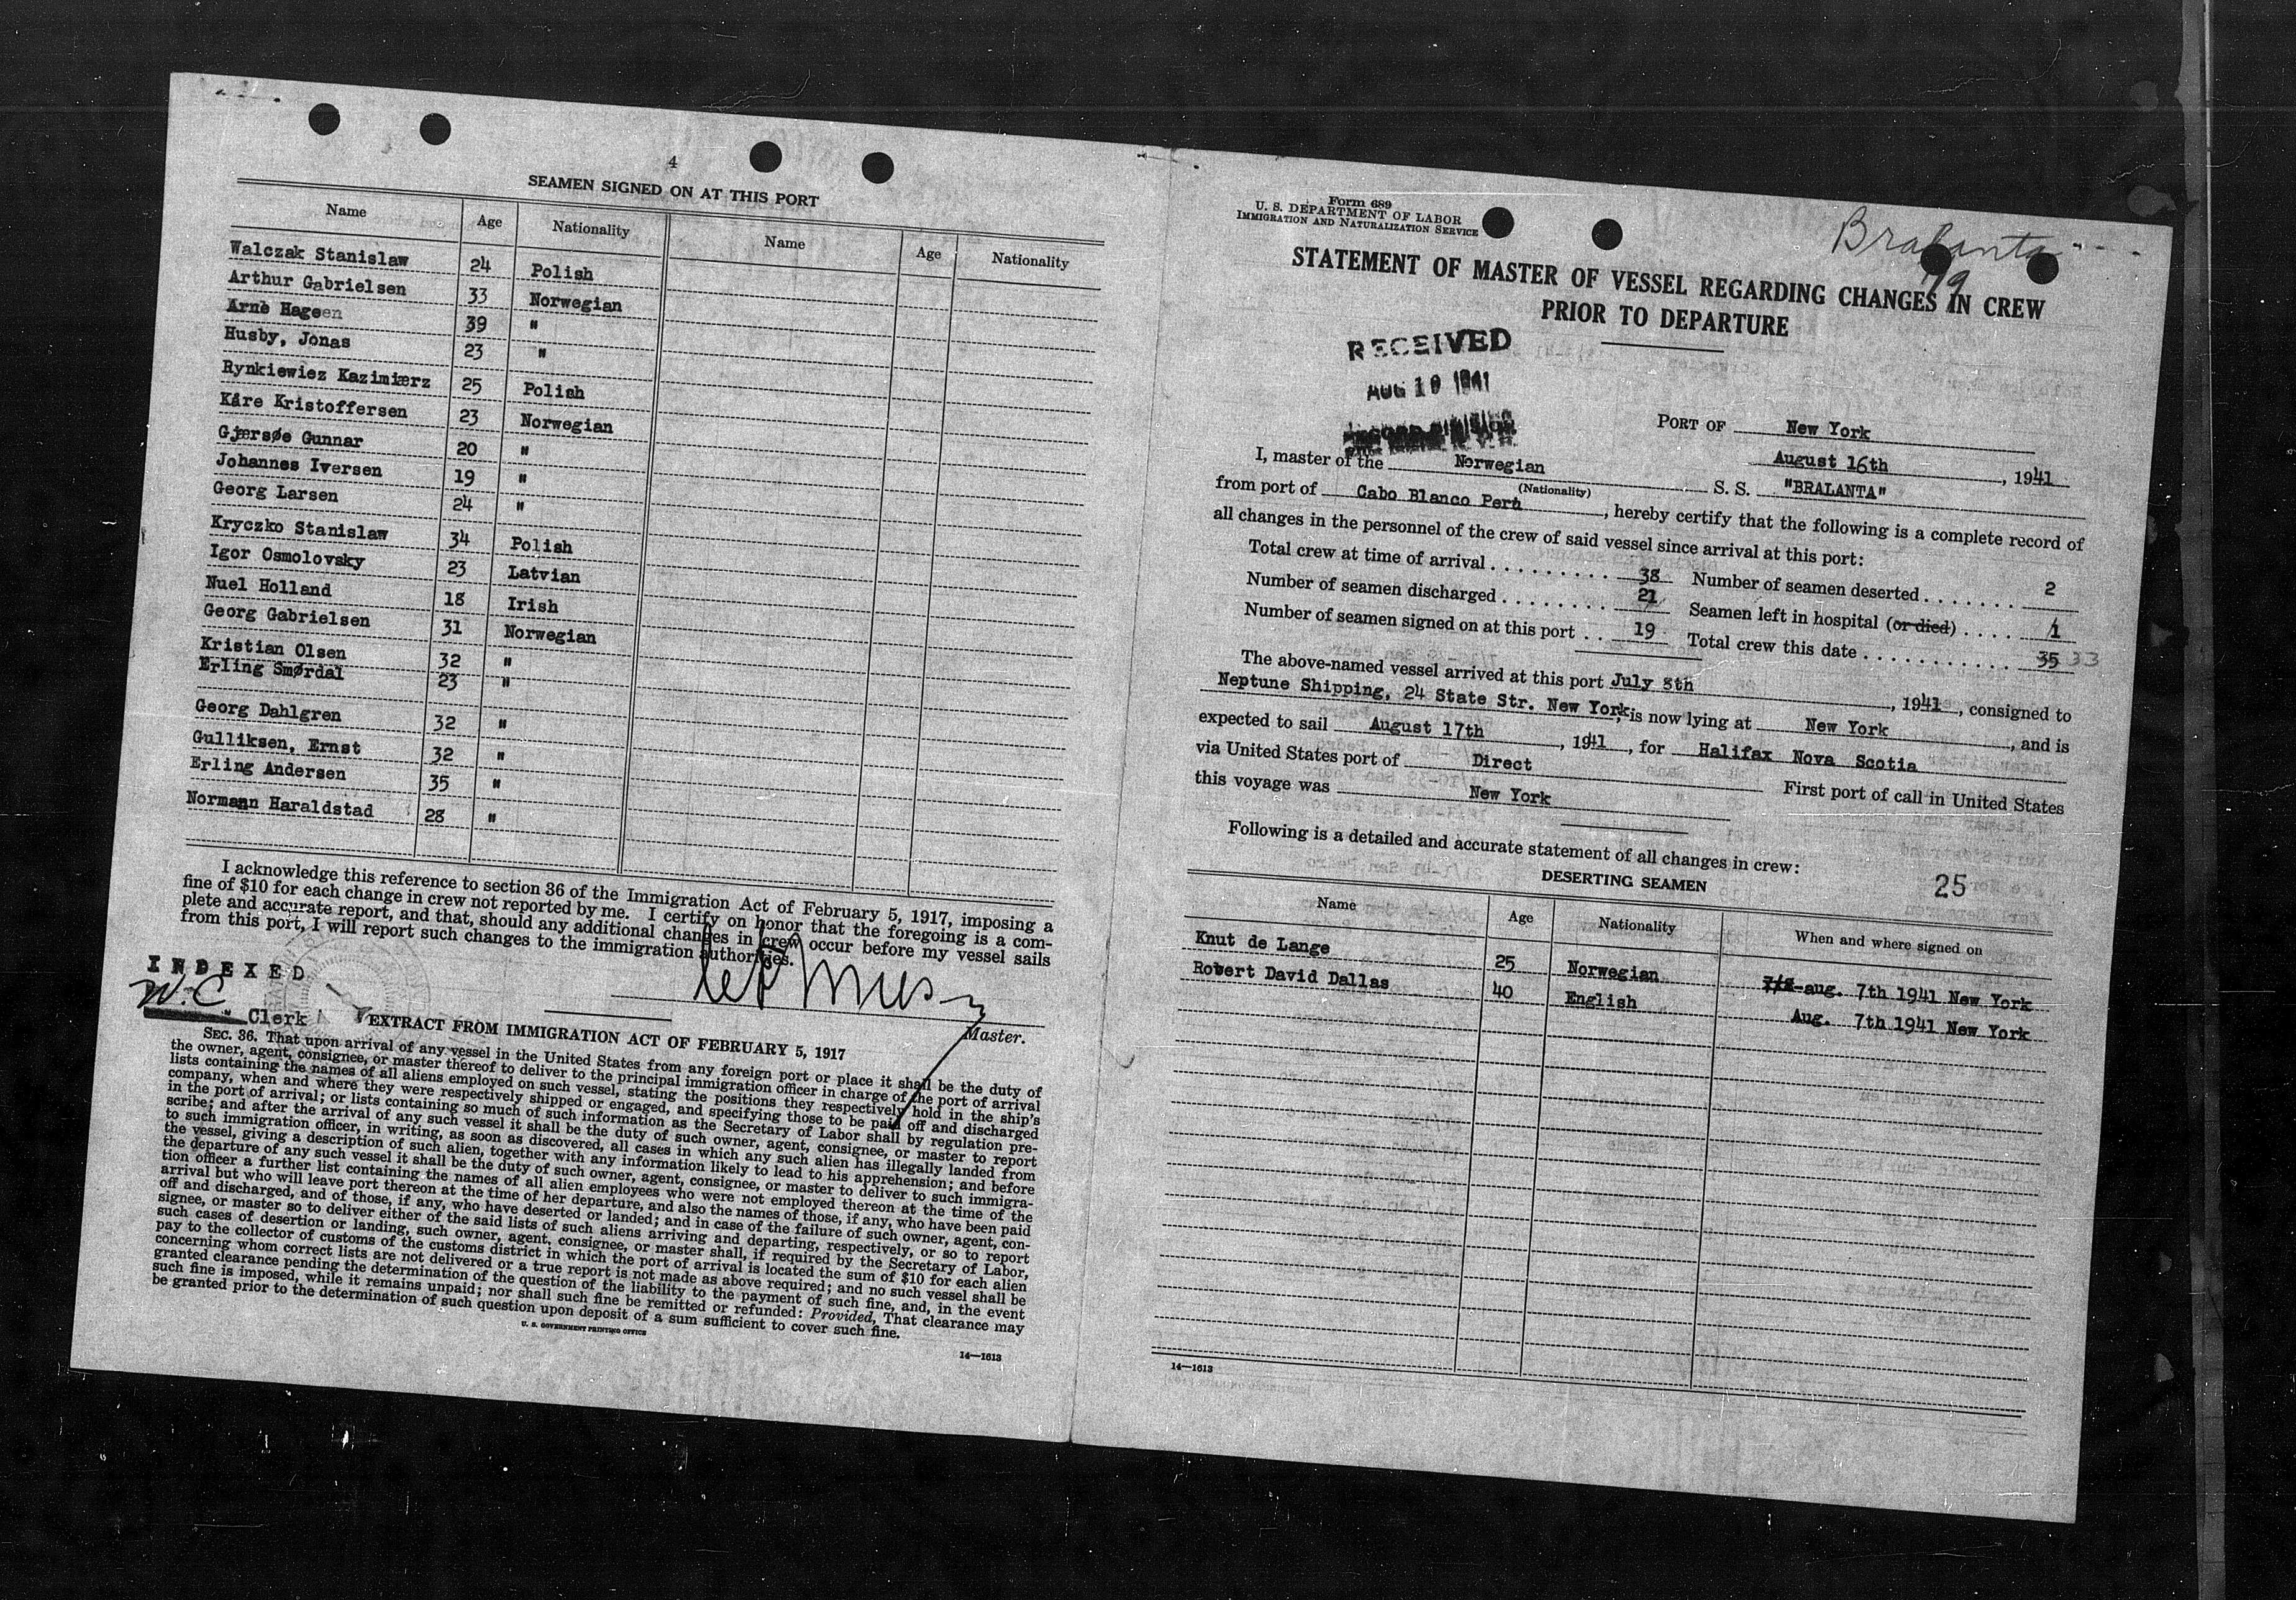 4
SEAMEN SIGNED ON AT THIS PORT
Name Age Nationality Name Age Nationality
Walczak Stanislaw 24 Polish
Arthur Gabrielsen 33 Norwegian
Arne Hageen 39 "
Husby, Jonas 23 "
Rynkiewiez Kazimiærz 25 Polish
Kåre Kristoffersen 23 Norwegian
Gjærsøe Gunnar 20 "
Johannes Iversen 19 "
Georg Larsen 24 "
Kryczko Stanislaw 34 Polish
Igor Osmolovsky 23 Latvian
Nuel Holland 18 Irish
Georg Gabrielsen 31 Norwegian
Kristian Olsen 32 "
Erling Smørdal 23 "
Georg Dahlgren 32 "
Gulliksen, Ernst 32 "
Erling Andersen 35 "
Normann Haraldstad 28 "
I acknowledge this reference to section 36 of the Immigration Act of February 5, 1917, imposing a
fine of $10 for each change in crew not reported by me. I certify on honor that the foregoing is a com-
plete and accurate report, and that, should any additional changes in crew occur before my vessel sails
from this port, I will report such changes to the immigration authorities.
INDEXED
W.C
Clerk
Master.
EXTRACT FROM IMMIGRATION ACT OF FEBRUARY 5, 1917
SEC. 36. That upon arrival of any vessel in the United States from any foreign port or place it shall be the duty of
the owner, agent, consignee, or master thereof to deliver to the principal immigration officer in charge of the port of arrival
lists containing the names of all aliens employed on such vessel, stating the positions they respectively hold in the ship's
company, when and where they were respectively shipped or engaged, and specifying those to be paid off and discharged
in the port of arrival; or lists containing so much of such information as the Secretary of Labor shall by regulation pre-
scribe; and after the arrival of any such vessel it shall be the duty of such owner, agent, consignee, or master to report
to such immigration officer, in writing, as soon as discovered, all cases in which any such alien has illegally landed from
the vessel, giving a description of such alien, together with any information likely to lead to his apprehension; and before
the departure of any such vessel it shall be the duty of such owner, agent, consignee, or master to deliver to such immigra-
tion officer a further list containing the names of all alien employees who were not employed thereon at the time of the
arrival but who will leave port thereon at the time of her departure, and also the names of those, if any, who have been paid
off and discharged, and of those, if any, who have deserted or landed; and in case of the failure of such owner, agent, con-
signee, or master so to deliver either of the said lists of such aliens arriving and departing, respectively, or so to report
such cases of desertion or landing, such owner, agent, consignee, or master shall, if required by the Secretary of Labor,
pay to the collector of customs of the customs district in which the port of arrival is located the sum of $10 for each alien
concerning whom correct lists are not delivered or a true report is not made as above required; and no such vessel shall be
granted clearance pending the determination of the question of the liability to the payment of such fine, and, in the event
such fine is imposed, while it remains unpaid; nor shall such fine be remitted or refunded: Provided, That clearance may
be granted prior to the determination of such question upon deposit of a sum sufficient to cover such fine.
U. S. GOVERNMENT PRINTING OFFICE
14—1613
Form 689
U. S. DEPARTMENT OF LABOR
IMMIGRATION AND NATURALIZATION SERVICE
Bralanta
19
STATEMENT OF MASTER OF VESSEL REGARDING CHANGES IN CREW
PRIOR TO DEPARTURE
RECEIVED
AUG 19 1941
PORT OF New York
August 16th, 1941
I, master of the Norwegian S. S. "BRALANTA"
(Nationality)
from port of Cabo Blanco Peru, hereby certify that the following is a complete record of
all changes in the personnel of the crew of said vessel since arrival at this port:
Total crew at time of arrival 38 Number of seamen deserted 2
Number of seamen discharged 21 Seamen left in hospital (or died) 1
Number of seamen signed on at this port 19 Total crew this date 35 33
The above-named vessel arrived at this port July 8th, 1941, consigned to
Neptune Shipping, 24 State Str. New York, is now lying at New York, and is
expected to sail August 17th, 1941, for Halifax Nova Scotia
via United States port of Direct First port of call in United States
this voyage was New York
Following is a detailed and accurate statement of all changes in crew:
DESERTING SEAMEN 25
Name Age Nationality When and where signed on
Knut de Lange 25 Norwegian 7/8-aug. 7th 1941 New York
Robert David Dallas 40 English Aug. 7th 1941 New York
14—1613